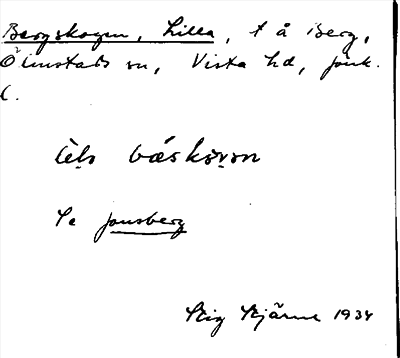 Bergskogen, Lilla, t å Berg,
Ölmstads sn, Vista hd, Jönk.
l.
bǽskọvọn
Se Jonsberg
Stig Stjärne 1934